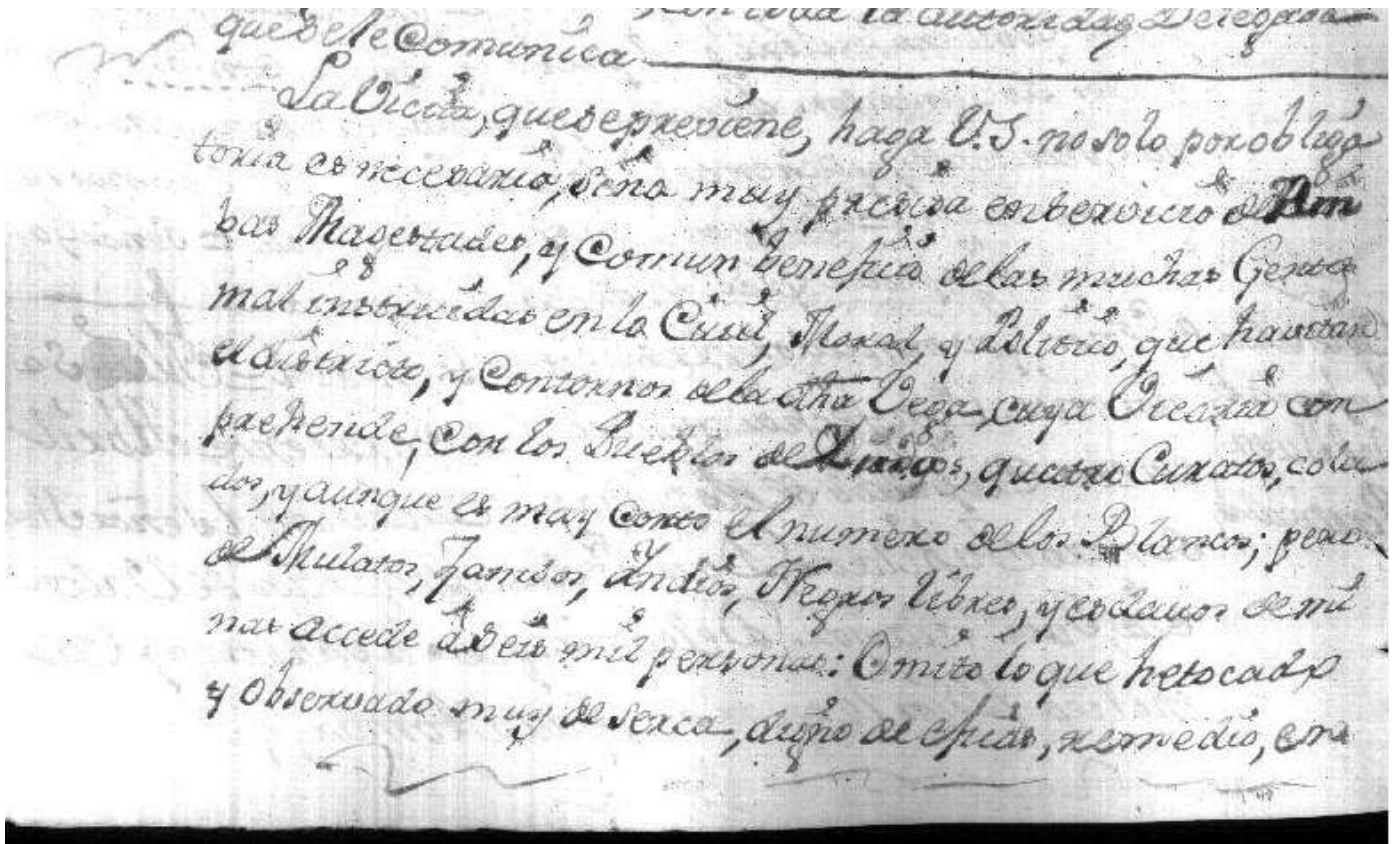 con toda la autoridad Delegada
que se le Comunica
La Vicita, que se previene, haga V.S. no solo por obliga
toria es necesaria, sino muy precisa en servicio de Am
bas Magestades, y Comun beneficio de las muchas Gentes
mal instruidas en lo Civil, Moral, y Politico, que havitan
el districto, y Contornos de la dha Vega, cuya Vicaria com
prehende, con los Pueblos de Indios, quatro Curatos, cola
dos, y aunque es muy corto el numero de los Blancos; pero
de Mulatos, Zambos, Indios, Negros libres, y esclavos de mi
nas accede á seis mil personas: Omito lo que he tocado
y observado muy de serca, digno de eficás, remedio, en